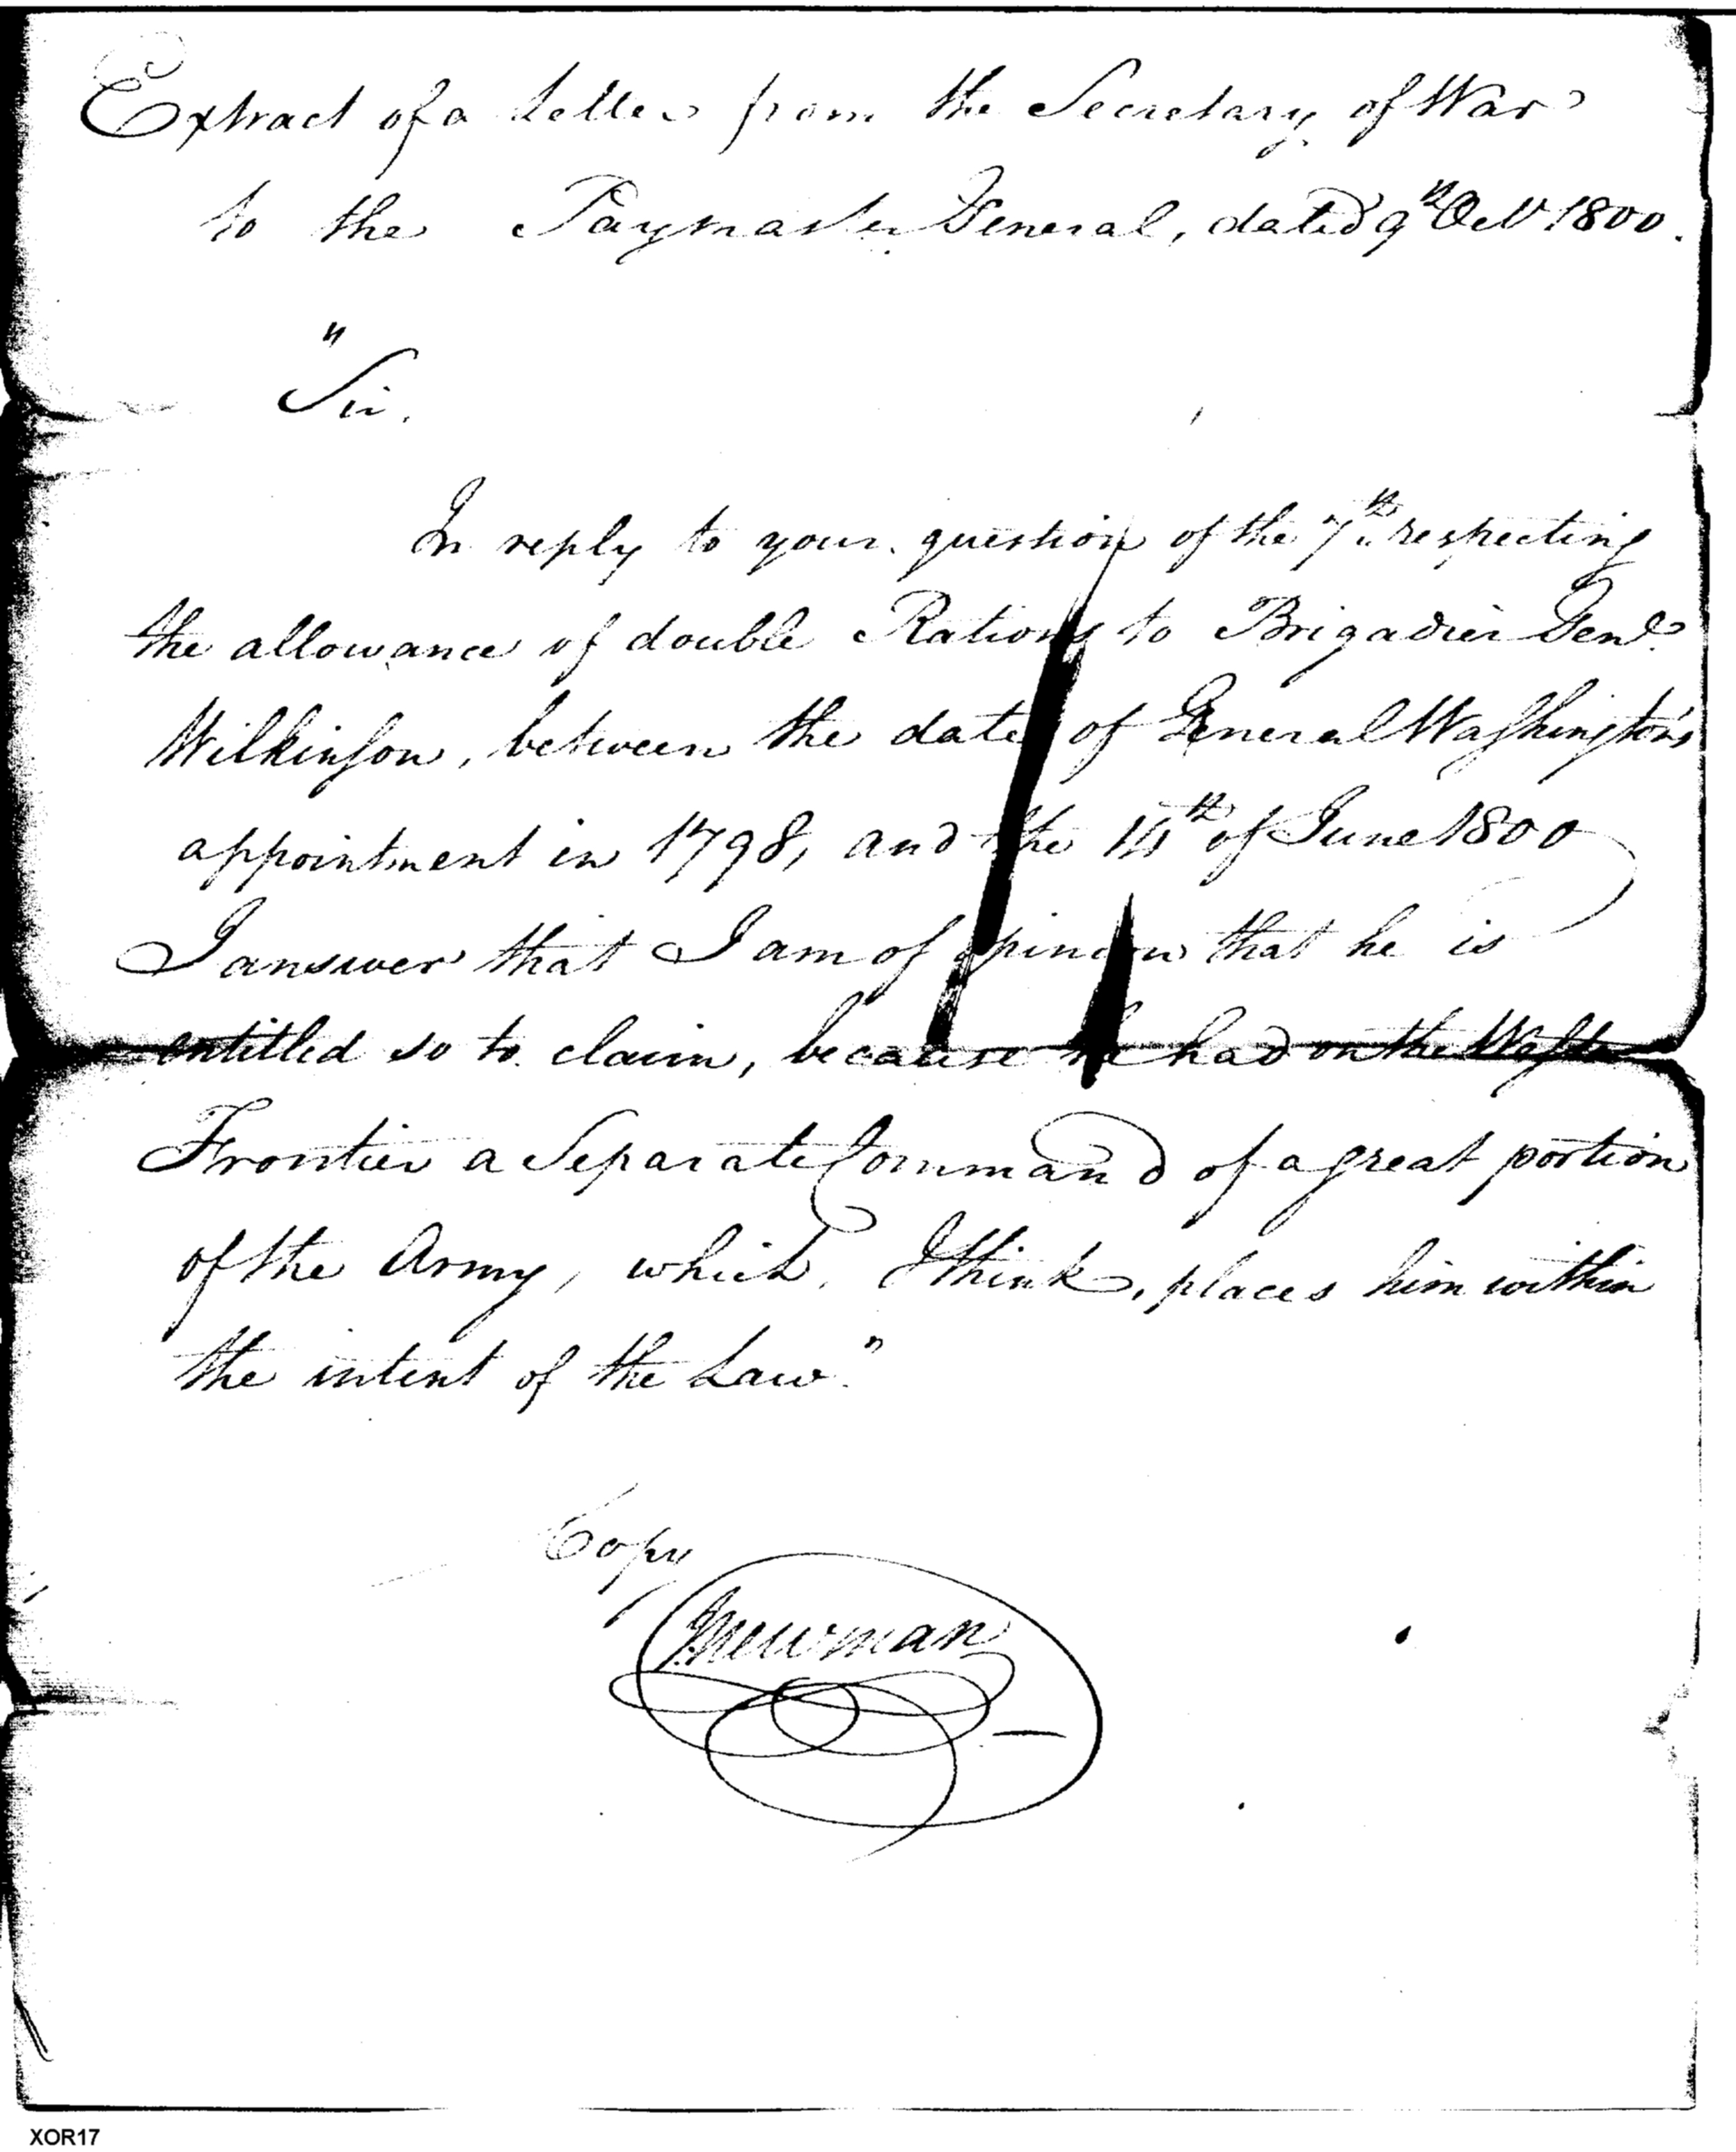 Extract of a Letter from the Secretary of War
to the Paymaster General, dated 9th Octr 1800.
"Sir.
In reply to your question of the 7th respecting
the allowance of double Rations to Brigadier Genl
Wilkinson, between the date of General Washington's
appointment in 1798, and the 14th of June 1800
I answer that I am of opinion that he is
entitled so to claim, because he had on the
Frontier a Separate Command of a great portion
of the Army, which, I think, places him within
the intent of the Law."
Copy
J Newman
XOR17